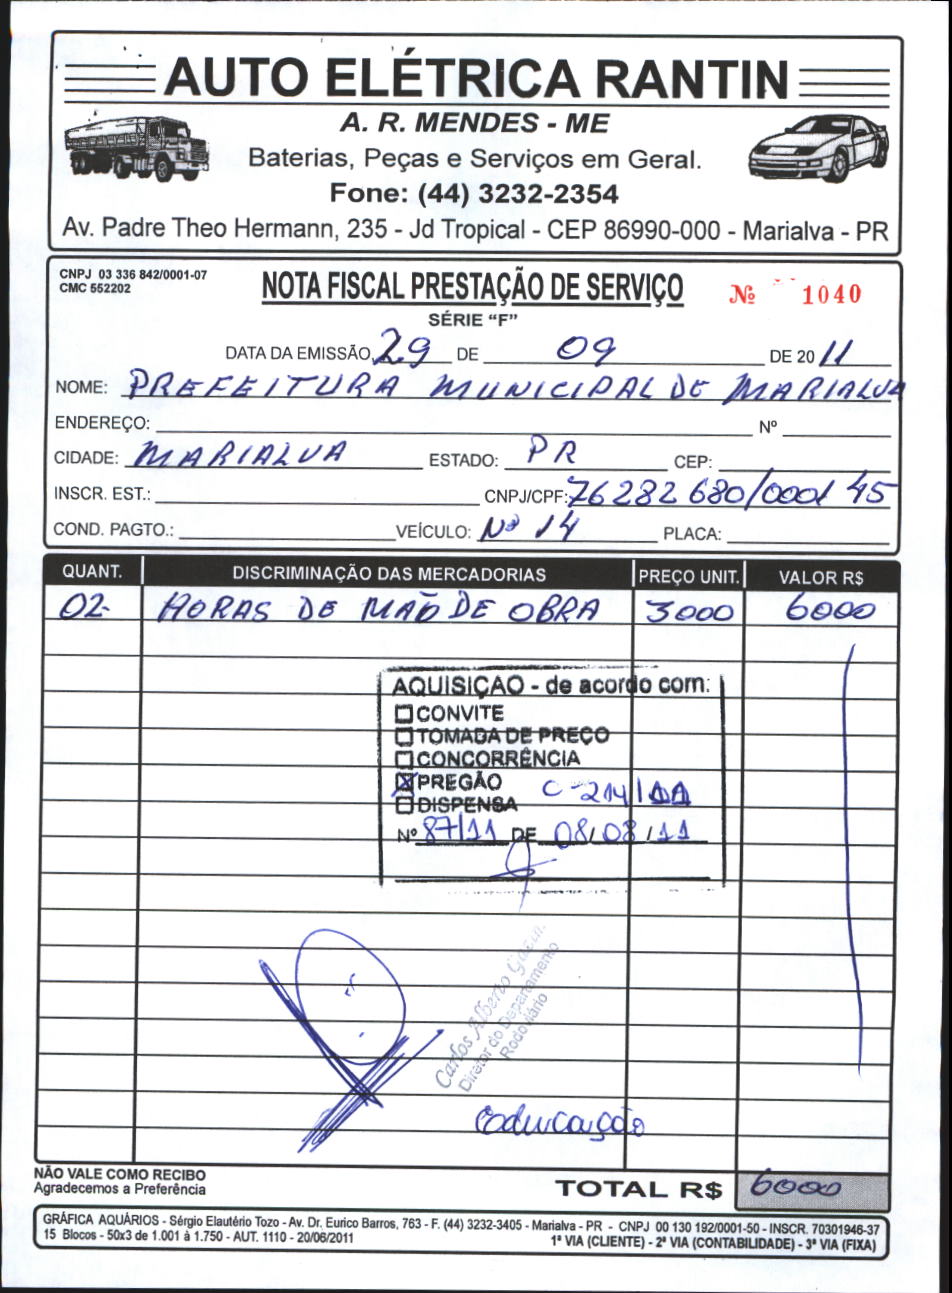 AUTO ELÉTRICA RANTIN
A. R. MENDES - ME
Baterias, Peças e Serviços em Geral.
Fone: (44) 3232-2354
Av. Padre Theo Hermann, 235 - Jd Tropical - CEP 86990-000 - Marialva - PR
CNPJ 03 336 842/0001-07
CMC 552202
NOTA FISCAL PRESTAÇÃO DE SERVIÇO
Nº 1040
SÉRIE "F"
DATA DA EMISSÃO 29 DE 09 DE 2011
NOME: PREFEITURA MUNICIPAL DE MARIALVA
ENDEREÇO: Nº
CIDADE: MARIALVA ESTADO: PR CEP:
INSCR. EST.: CNPJ/CPF: 76282680/0001 45
COND. PAGTO.: VEÍCULO: Nº 14 PLACA:
QUANT. DISCRIMINAÇÃO DAS MERCADORIAS PREÇO UNIT. VALOR R$
02- HORAS DE MÃO DE OBRA 3000 6000
AQUISIÇÃO - de acordo com:
CONVITE
TOMADA DE PREÇO
CONCORRÊNCIA
PREGÃO C-214/11
DISPENSA
Nº 87/11 DE 08/08/11
Carlos Alberto
Diretor do Departamento
Rodoviário
Educação
NÃO VALE COMO RECIBO
Agradecemos a Preferência
TOTAL R$ 6000
GRÁFICA AQUÁRIOS - Sérgio Elautério Tozo - Av. Dr. Eurico Barros, 763 - F. (44) 3232-3405 - Marialva - PR - CNPJ 00 130 192/0001-50 - INSCR. 70301946-37
15 Blocos - 50x3 de 1.001 à 1.750 - AUT. 1110 - 20/06/2011 1ª VIA (CLIENTE) - 2ª VIA (CONTABILIDADE) - 3ª VIA (FIXA)